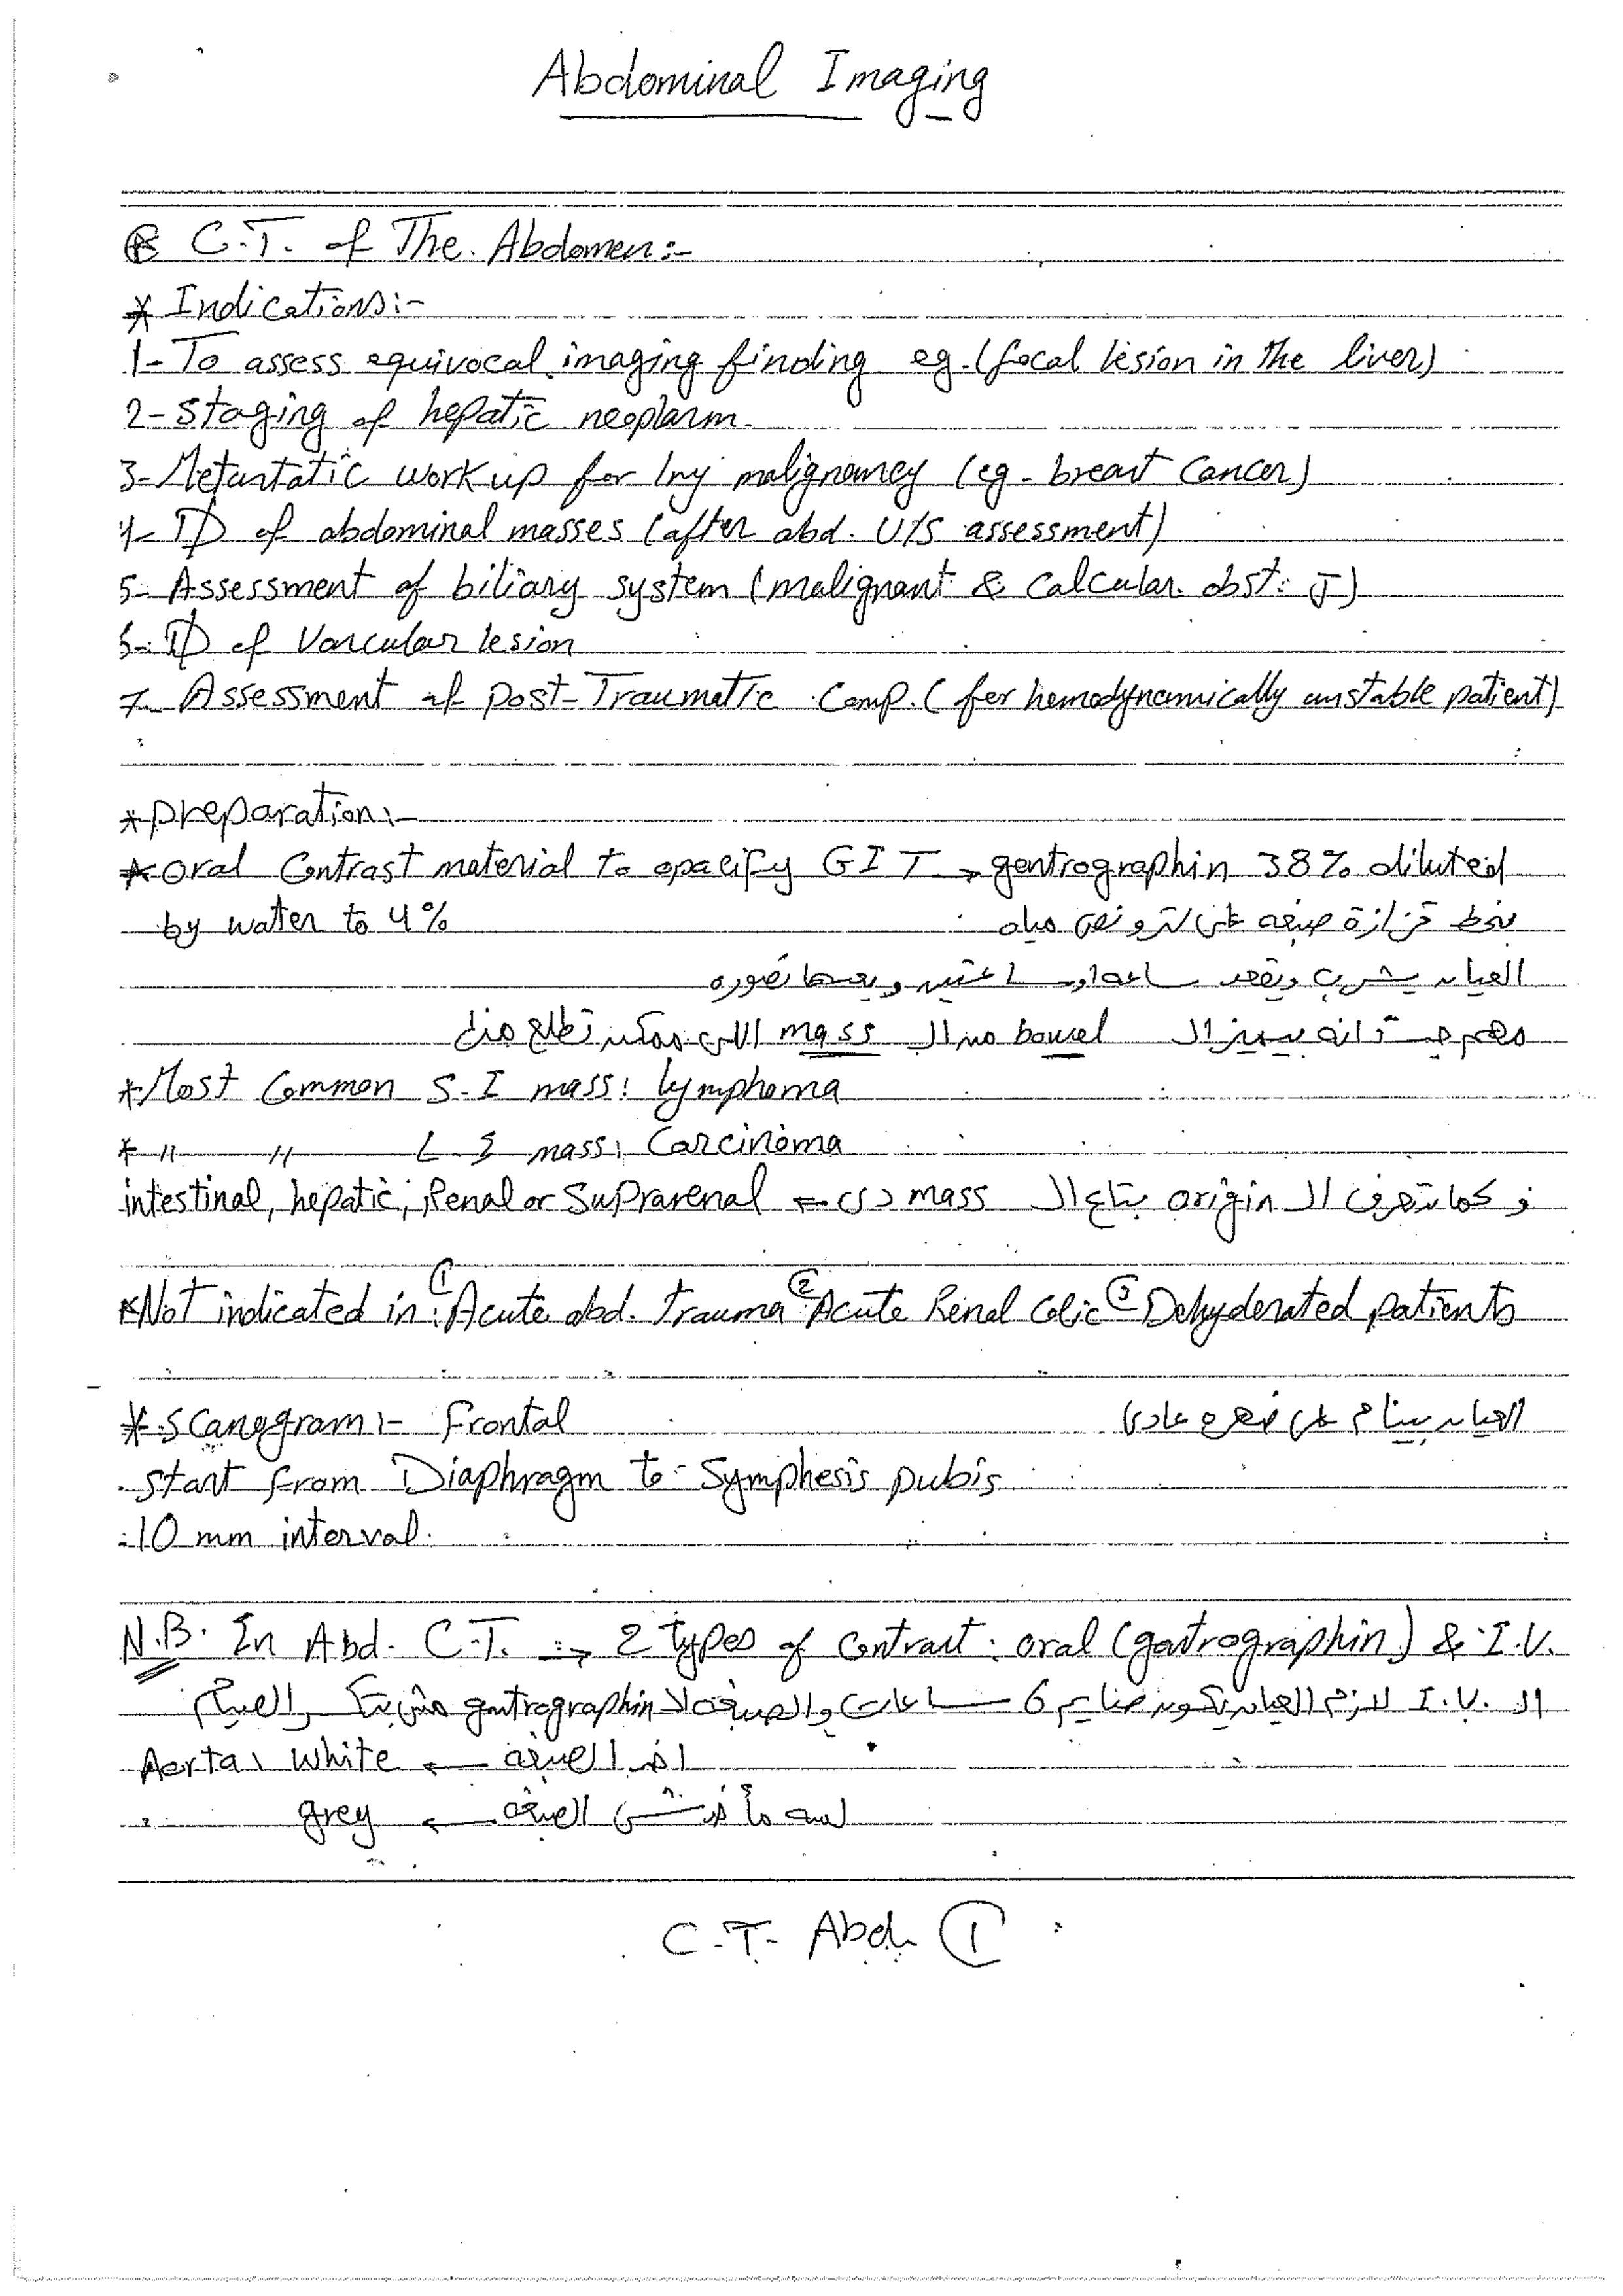 Abdominal Imaging
® C.T. of The Abdomen:-
* Indications:-
1- To assess equivocal imaging finding eg. (focal lesion in the liver)
2- Staging of hepatic neoplasm.
3- Metastatic work up for 1ry malignancy (eg. breast Cancer)
4- D of abdominal masses (after abd. U/S assessment)
5- Assessment of biliary system (malignant & Calcular obst. J)
6- D of Vascular lesion
7- Assessment of post-Traumatic Comp. (for hemodynamically unstable patient)
* Preparation:-
* Oral Contrast material to opacify GIT → gastrographin 38% diluted
by water to 4%
بنحط قزازة صبغة على لتر ونص مياه
العيان يشرب ويقعد ساعة او ساعتين وبعدها نصوره
مهم جداً انه يميز ال bowel من ال mass اللي ممكن تطلع منه
* Most Common S.I mass: lymphoma
* " " L I mass: Carcinoma
و كمان تعرف ال origin بتاع ال mass دي ⇐ intestinal, hepatic, Renal or Suprarenal
* Not indicated in: ① Acute abd. trauma ② Acute Renal Colic ③ Dehyderated patients
* Scanogram:- Frontal العيان بينام على ضهره عادي
start from Diaphragm to Symphesis pubis
10 mm interval.
N.B. In Abd. C.T. :→ 2 types of contrast: oral (gastrographin) & I.V.
ال I.V. لازم العيان يكون صايم 6 ساعات والصبغة ال gastrographin مش بتكسر الصيام
Aorta: White ← اخد الصبغة
grey ← لسه ماخدش الصبغة
C.T. Abd. ①